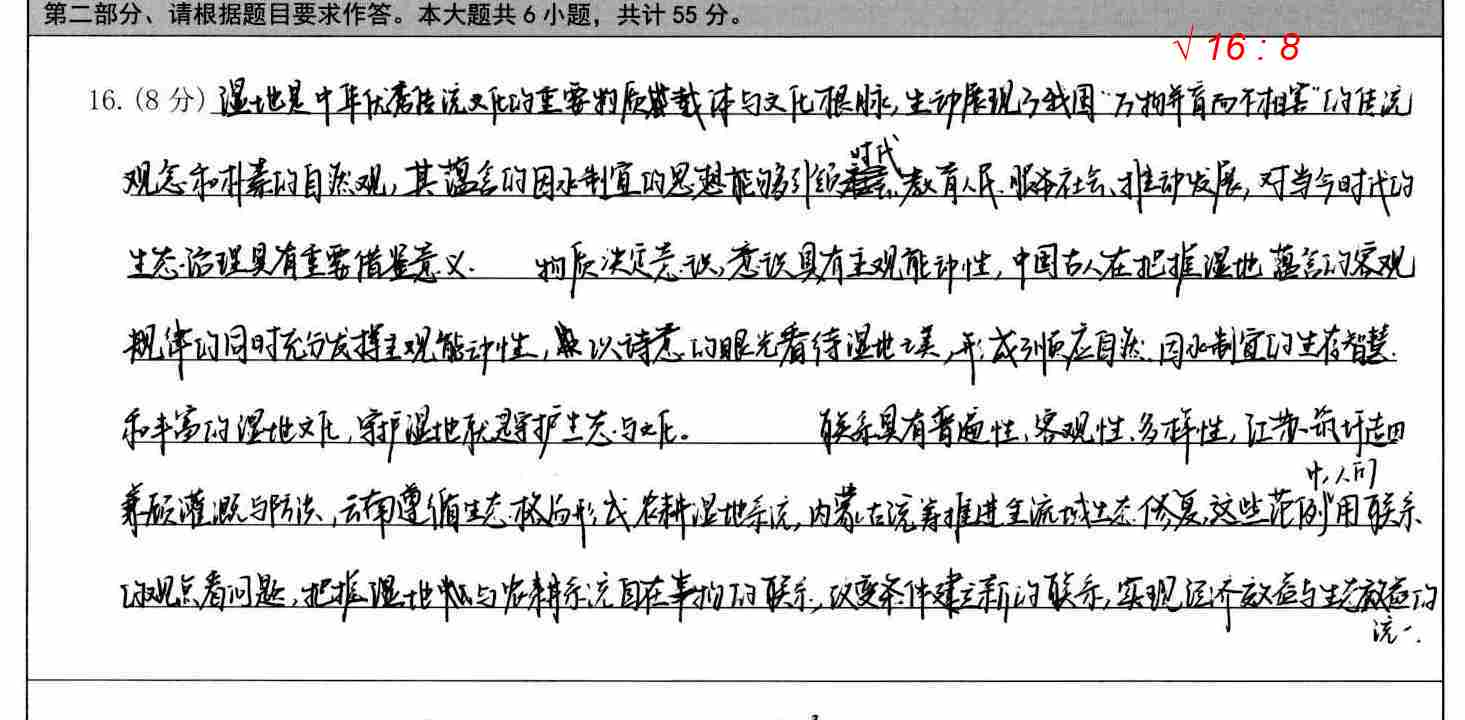 第二部分、请根据题目要求作答。本大题共 6 小题，共计 55 分。
√ 16 : 8
16. (8 分) 湿地是中华优秀传统文化的重要物质载体与文化根脉，生动展现了我国“万物并育而不相害”的传统
观念和朴素的自然观，其蕴含的因水制宜的思想能够引领时代、教育人民、服务社会、推动发展，对当今时代的
生态治理具有重要借鉴意义. 物质决定意识，意识具有主观能动性，中国古人在把握湿地蕴含的客观
规律的同时充分发挥主观能动性，以诗意的眼光看待湿地之美，形成了顺应自然、因水制宜的生存智慧
和丰富的湿地文化，守护湿地就是守护生态与文化。 联系具有普遍性、客观性、多样性，江苏筑圩造田
兼顾灌溉与防洪，云南遵循生态格局形成农耕湿地系统，内蒙古统筹推进全流域生态修复，这些范例中，人们用联系
的观点看问题，把握湿地与农耕系统自在事物的联系，改变条件建立新的联系，实现经济效益与生态效益的
统一.